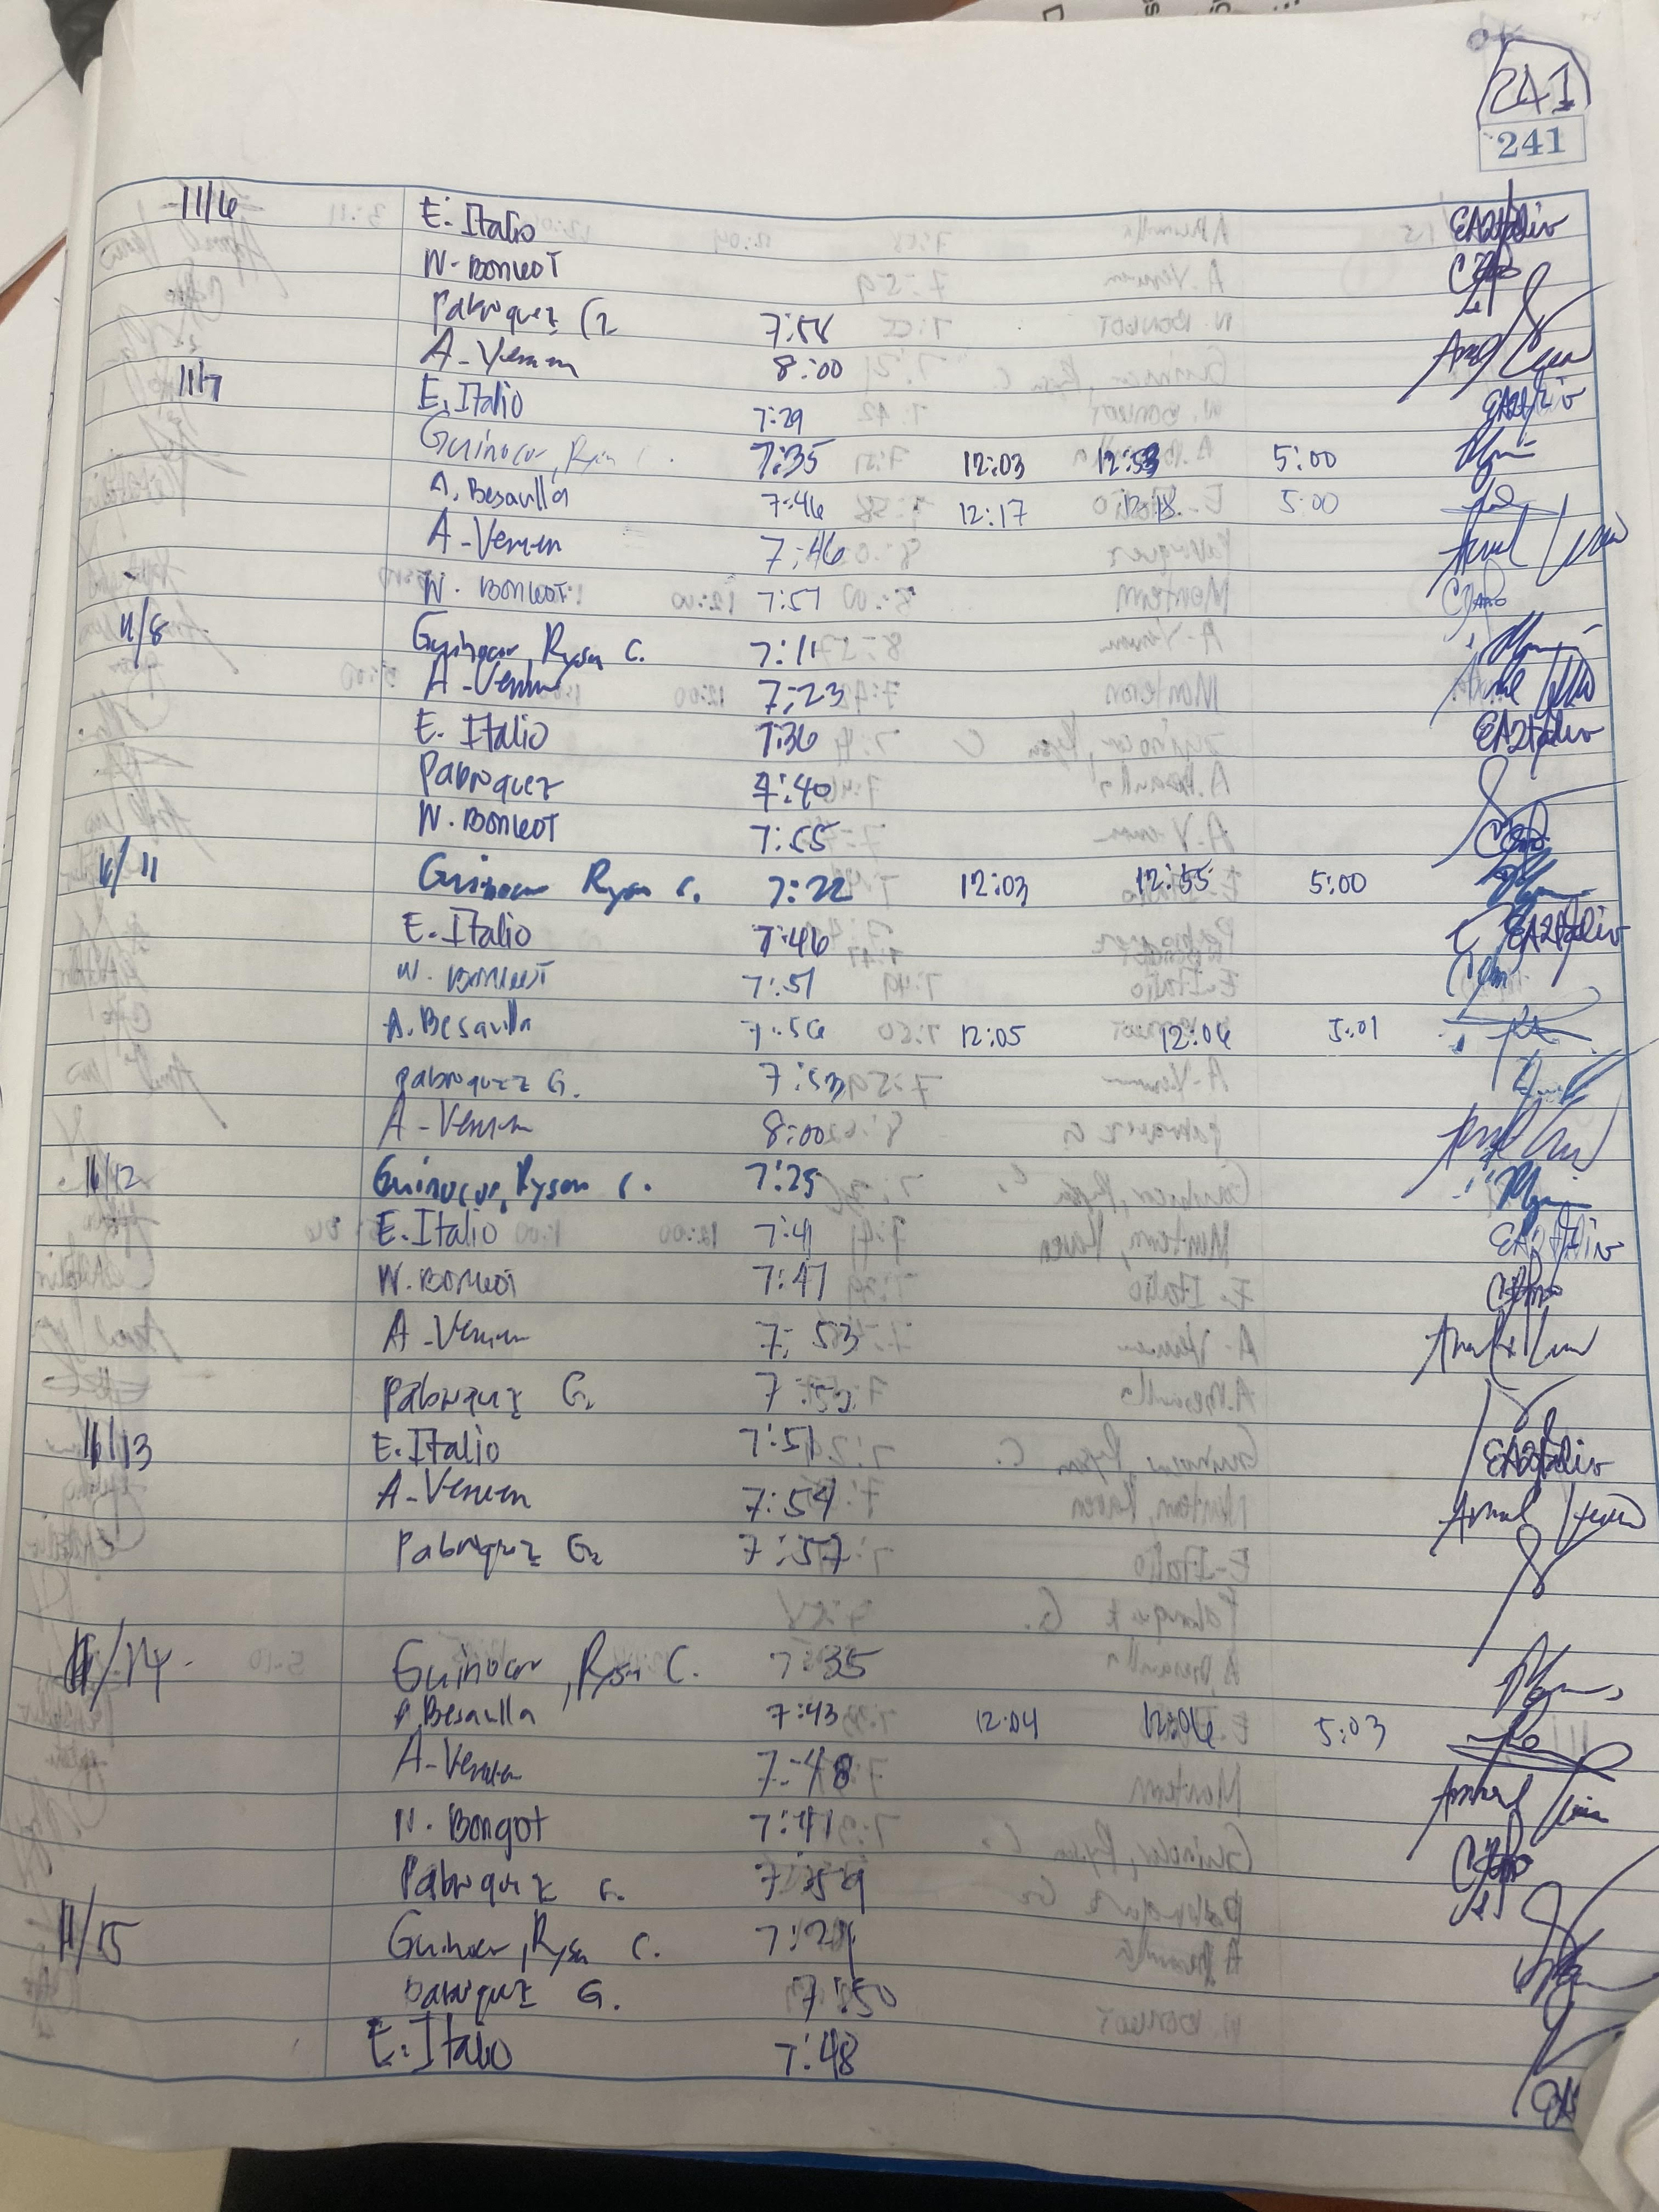 241
241
11/6 E. Italio
W. BONGOT
Pabroquez G 7:58
A-Veniun 8:00
11/7 E. Italio 7:29
Guinocor, Ryan C. 7:35 12:03 12:53 5:00
A. Besavilla 7:46 12:17 12:18 5:00
A-Veniun 7:46
W. BONGOT 7:51
11/8 Guinocor, Ryan C. 7:11
A-Veniun 7:23
E. Italio 7:36
Pabroquez 7:40
W. BONGOT 7:55
11/11 Guinocor Ryan C. 7:22 12:03 12:55 5:00
E. Italio 7:46
W. BONGOT 7:51
A. Besavilla 7:56 12:05 12:06 5:01
Pabroquez G. 7:53
A-Veniun 8:00
11/12 Guinocor, Ryan C. 7:25
E. Italio 7:41
W. BONGOT 7:47
A-Veniun 7:53
Pabroquez G.
11/13 E. Italio 7:51
A-Veniun 7:54
Pabroquez G. 7:57
11/14 Guinocor, Ryan C. 7:35
A. Besavilla 7:43 12:04 12:06 5:03
A-Veniun 7:48
N. Bongot 7:41
Pabroquez G. 7:59
11/15 Guinocor, Ryan C. 7:24
Pabroquez G. 7:50
E. Italio 7:48